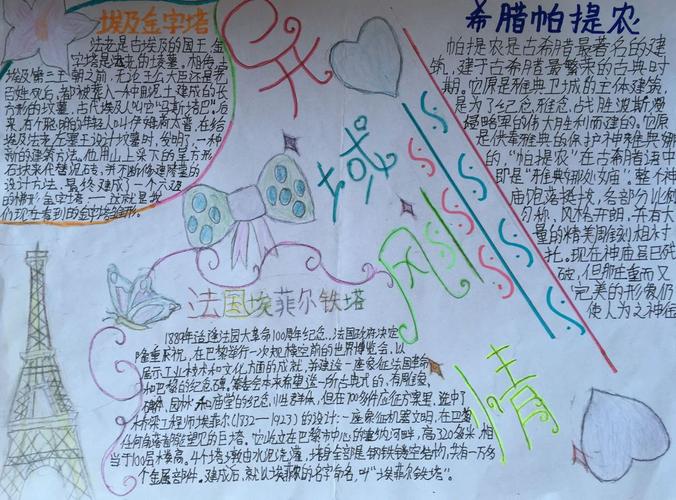 埃及金字塔
法老是古埃及的国王,金
字塔是法老的坟墓。相传,古
埃及第三王朝之前,无论王公大臣还是老
百姓死后,都被葬入一种用泥土建成的长
方形的坟墓,古代埃及人叫它"马斯塔巴"。后
来,有个聪明的年轻人叫伊姆荷太普,在给
埃及法老左塞王设计坟墓时,发明了一种
新的建筑方法。他用山上采下的呈方形
石块来代替泥砖,并不断修建陵墓的
设计方法,最终建成了一个六级
的梯形金字塔——这就是我
们现在看到的金字塔雏形。
异
域
风
情
希腊帕提农
帕提农是古希腊最著名的建
筑,建于古希腊最繁荣的古典时
期。它原是雅典卫城的主体建筑,
是为了纪念雅典战胜波斯侵
略军的伟大胜利而建的。它原
是供奉雅典的保护神雅典娜
的,"帕提农"在古希腊语中
即是"雅典娜处女庙"。整个神
庙饱落挺拔,各部分比例
匀称、风格开朗,并有大
量的精美雕刻相衬
托。现在神庙虽已残
破,但那庄重而又
完美的形象仍
使人为之神往
法国埃菲尔铁塔
1889年适逢法国大革命100周年纪念,法国政府决定
隆重庆祝,在巴黎举行一次规模空前的世界博览会,以
展示工业技术和文化方面的成就,并建造一座象征法国革命
和巴黎的纪念碑。筹委会本来希望建造一所古典式的,有雕像、
碑体、园林和庙堂的纪念性群体,但在700多件应征方案里,选中了
桥梁工程师埃菲尔(1832—1923)的设计:一座象征机器文明,在巴黎
任何角落都能望见的巨塔。它屹立在巴黎市中心的塞纳河畔,高320多米,相
当于100层楼高。4个塔墩由水泥浇灌,塔身全部是钢铁镂空结构,共有一万多
个金属部件。建成后,就以埃菲尔的名字命名,叫"埃菲尔铁塔"。